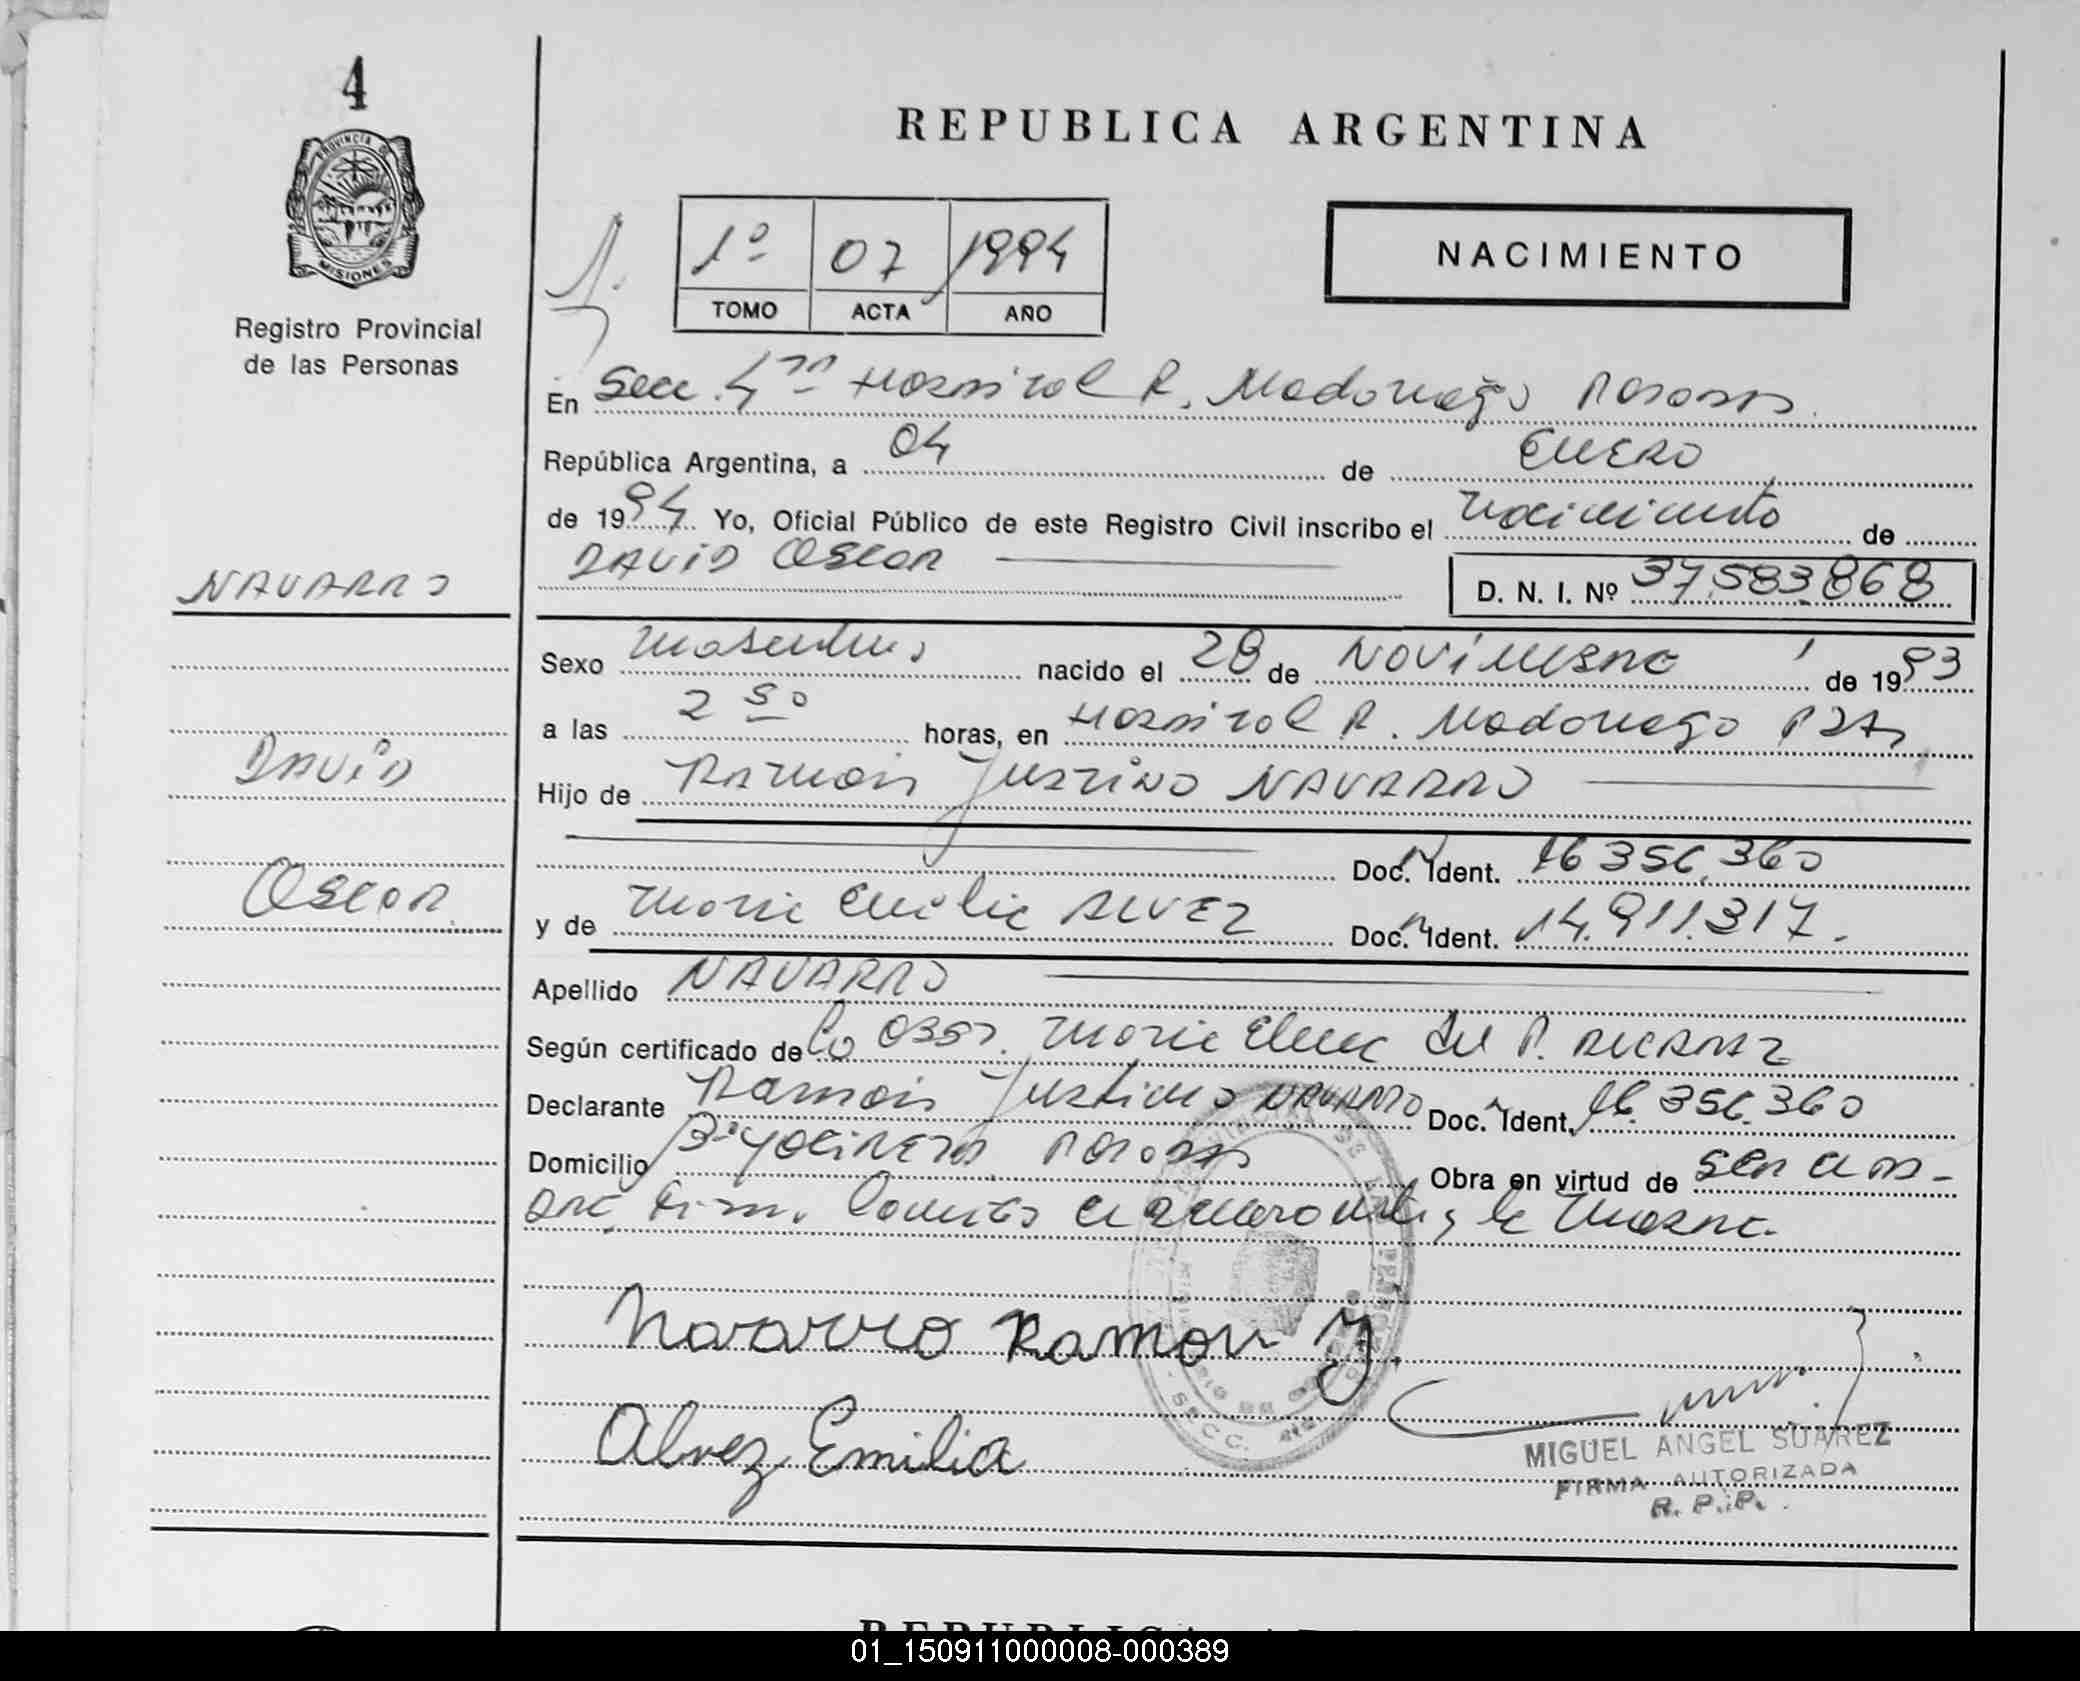 4
PROVINCIA DE
MISIONES
Registro Provincial
de las Personas
REPUBLICA ARGENTINA
1º 07 1994
TOMO ACTA AÑO
NACIMIENTO
En Secc. 4ta Hospital R. Madariaga Posadas
República Argentina, a 04 de ENERO
de 1994 Yo, Oficial Público de este Registro Civil inscribo el nacimiento de
DAVID OSCAR
D. N. I. Nº 37.583.868
NAVARRO
DAVID
OSCAR
Sexo masculino nacido el 28 de NOVIEMBRE de 1993
a las 2 50 horas, en Hospital R. Madariaga Pdas
Hijo de Ramón Justino NAVARRO
Doc. Ident. 16.356.360
y de María Emilia ALVEZ Doc. Ident. 14.911.317.
Apellido NAVARRO
Según certificado de la Obst. María Elena del P.
Declarante Ramón Justino NAVARRO Doc. Ident. 16.356.360
Domicilio Posadas Obra en virtud de ser el pa-
dre, firm. la madre.
Navarro Ramon J.
Alvez Emilia
MIGUEL ANGEL SUAREZ
FIRMA AUTORIZADA
R. P. P.
REPUBLICA
01_150911000008-000389